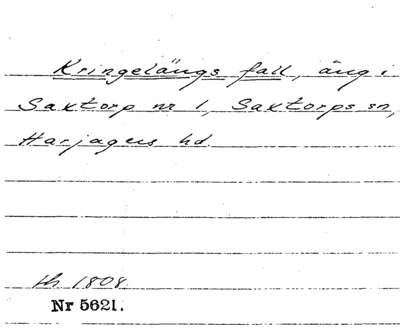 Kringelängs fall, äng i
Saxtorp nr 1, Saxtorps sn,
Harjagers hd.
th 1808.
Nr 5621.